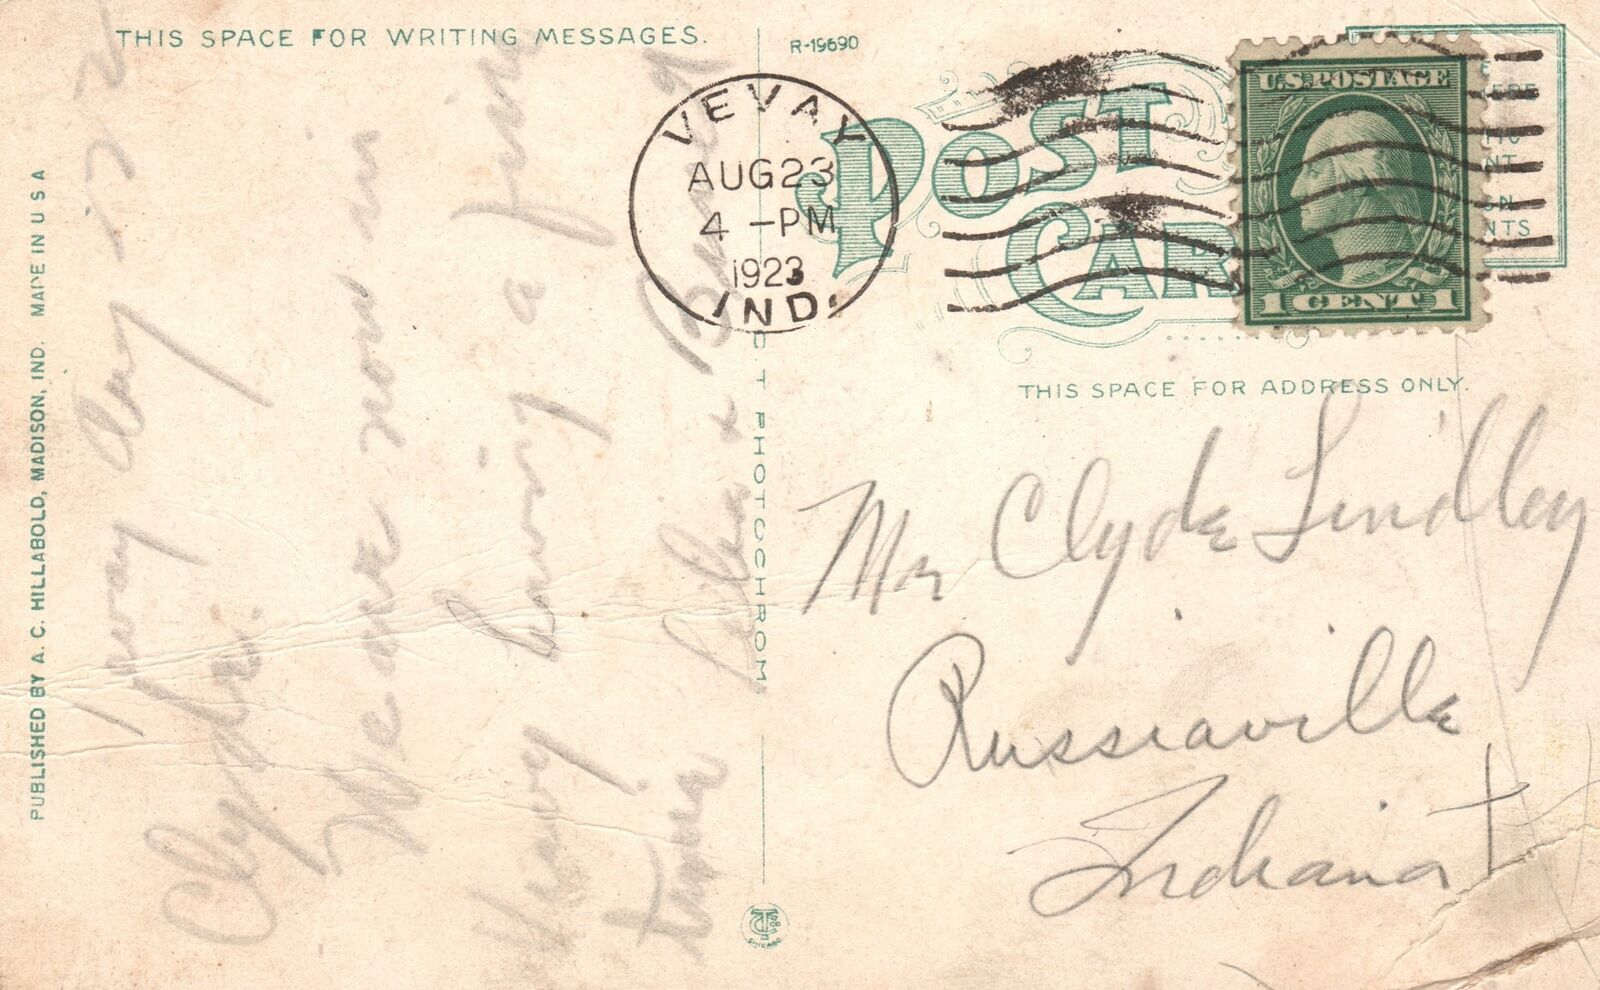 THIS SPACE FOR WRITING MESSAGES.
R-19690
POST CARD
VEVAY
AUG 23
4 -PM
1923
IND.
U.S. POSTAGE
1 CENT 1
THIS SPACE FOR ADDRESS ONLY.
Aug 17 - 2
Clyde.
We are now in
Vevay having a fine
time
Mr Clyde Lindley
Russiaville
Indiana
PUBLISHED BY A. C. HILLABOLD, MADISON, IND. MADE IN U S A
PHOTOCHROM
CHICAGO